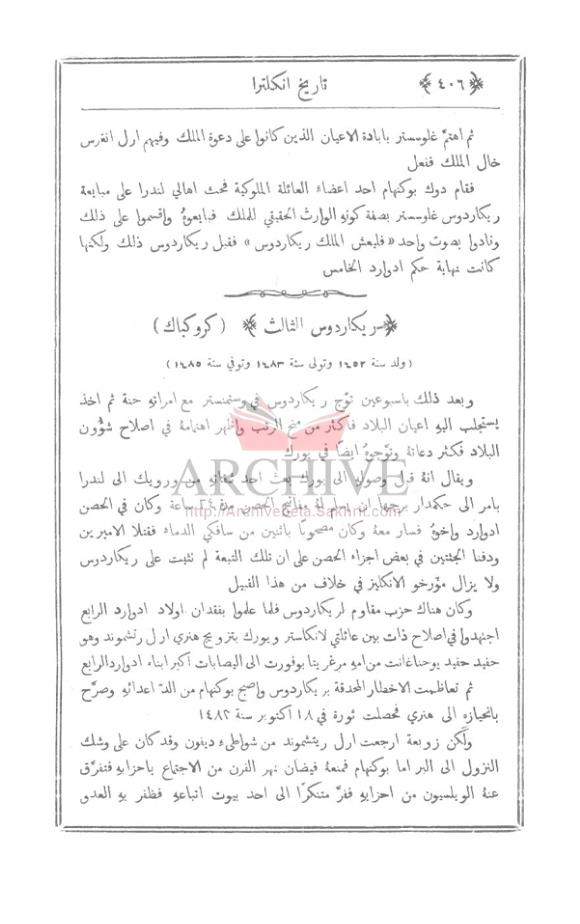 ﴿ ٤٠٦ ﴾ تاريخ انكلترا
ثم اهتمَّ غلوسستر بابادة الاعيان الذين كانوا على دعوة الملك وفيهم ارل انفرس
خال الملك فنعل
فقام دوك بوكنهام احد اعضاء العائلة الملوكية فحث اهالي لندرا على مبايعة
ريكاردوس غلوسستر بصفة كونهِ الوارث الحقيقي للملك فبايعوهُ واقسموا على ذلك
ونادوا بصوت واحد «فليعش الملك ريكاردوس» فقبل ريكاردوس ذلك ولكنها
كانت نهاية حكم ادوارد الخامس
﴿ ريكاردوس الثالث ﴾ (كروكباك)
(ولد سنة ١٤٥٢ وتولى سنة ١٤٨٣ وتوفي سنة ١٤٨٥)
وبعد ذلك باسبوعين توّج ريكاردوس في وستمنستر مع امرأتهِ حنة ثم اخذ
يستجلب اليهِ اعيان البلاد فاكثر من منح الرتب واظهر اهتمامهُ في اصلاح شؤون
البلاد فكثر دعاتهُ وتوّجوهُ ايضًا في يورك
ويقال انهُ قبل وصولهِ الى يورك بعث احد ثقاتهِ من ورويك الى لندرا
بامر الى حكمدار برجها ان يسلم لهُ مفاتيح الحصن مدة ٢٤ ساعة وكان في الحصن
ادوارد واخوهُ فسار معهُ وكان مصحوبًا باثنين من سافكي الدماء فقتلا الاميرين
ودفنا الجثتين في بعض اجزاء الحصن على ان تلك التبعة لم تثبت على ريكاردوس
ولا يزال مؤرخو الانكليز في خلاف من هذا القبيل
وكان هناك حزب مقاوم لريكاردوس فلما علموا بفقدان اولاد ادوارد الرابع
اجتهدوا في اصلاح ذات بين عائلتي لانكاستر ويورك بتزويج هنري ارل رتشموند وهو
حفيد حفيد يوحنا غانت من امهِ مرغريتا بوفورت الى اليصابات اكبر ابناء ادوارد الرابع
ثم تعاظمت الاخطار المحدقة بريكاردوس واصبح بوكنهام من الدّ اعدائهِ وصرَّح
بانحيازهِ الى هنري فحصلت ثورة في ١٨ اكتوبر سنة ١٤٨٣
ولكن زوبعة ارجعت ارل ريتشموند من شواطىء ديفون وقد كان على وشك
النزول الى البر اما بوكنهام فمنعهُ فيضان نهر الفرن من الاجتماع باحزابهِ فتفرَّق
عنهُ الويلسيون من احزابهِ ففرَّ متنكرًا الى احد بيوت اتباعهِ فظفر بهِ العدو
ARCHIVE
http://Archivebeta.Sakhrit.com